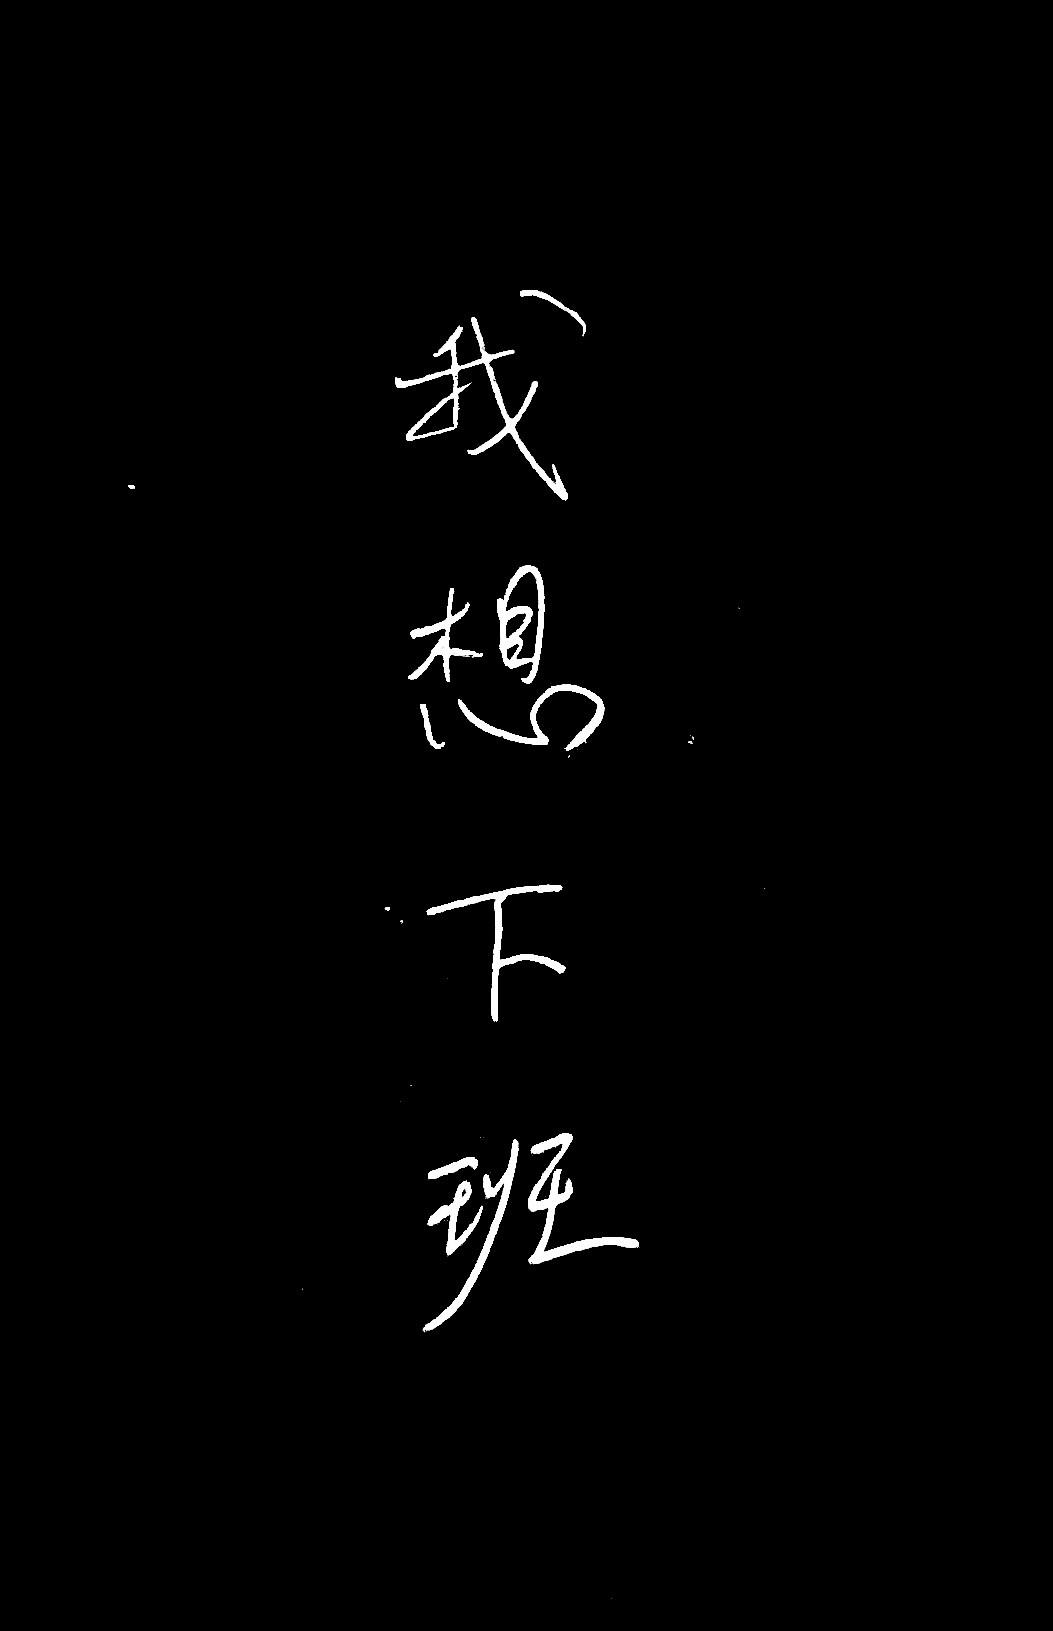 我想下班